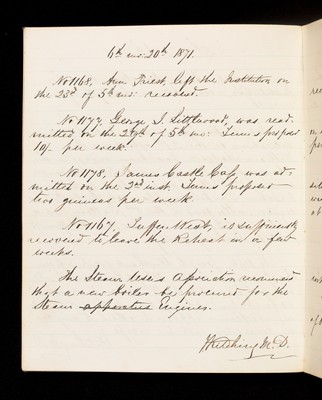 6th mo: 20th 1871.
No 1168, Ann Priest, left the Institution on
the 23d of 5th mo: recovered.
No 1177, George S. Littlewood, was read-
mitted on the 29th of 5th mo: Terms proposed
10/- per week.
No 1178, James Castle Cass was ad-
mitted on the 2nd inst. Terms proposed
two guineas per week.
No 1167, West, is sufficiently
recovered to leave the Retreat in a few
weeks.
The Steam Users Association recommend
that a new boiler be procured for the
Steam apparatus Engines.
J Kitching M.D.